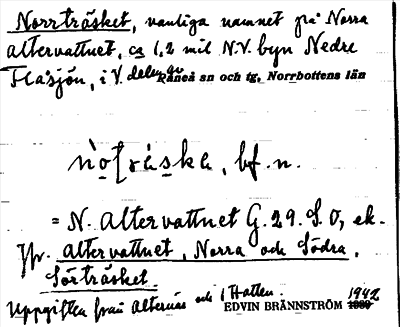 Norrträsket, vanliga namnet på Norra
Altervattnet, ca 1,2 mil N.V. byn Nedre
Flåsjön, i V. delen av Råneå sn och tg, Norrbottens län
bf. n.
= N. Altervattnet G. 29. S.O, ek.
Jfr. Altervattnet, Norra och Södra,
Sörträsket.
Uppgiften från Alternäs och i Hatten.
EDVIN BRÄNNSTRÖM 1942